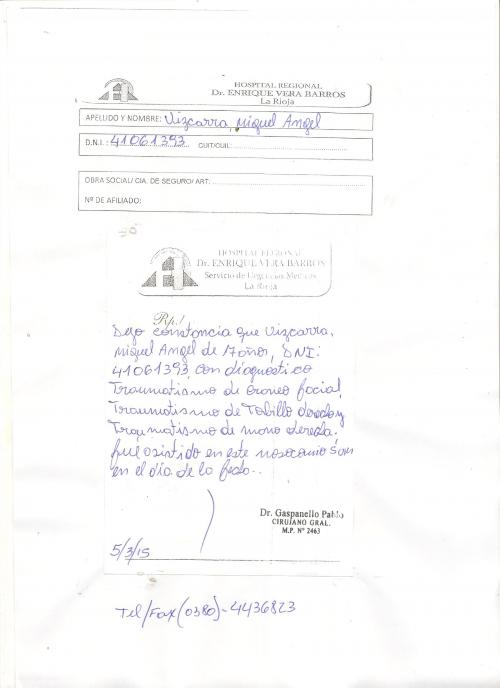 HOSPITAL REGIONAL
Dr. ENRIQUE VERA BARROS
La Rioja
APELLIDO Y NOMBRE: Vizcarra, Miguel Angel
D.N.I.: 41061393 CUIT/CUIL:
OBRA SOCIAL/ CIA. DE SEGURO/ ART:
Nº DE AFILIADO:
HOSPITAL REGIONAL
Dr. ENRIQUE VERA BARROS
Servicio de Urgencias Medicas
La Rioja
Rp./
Dejo constancia que Vizcarra,
Miguel Angel de 17 años, DNI:
41061393, con diagnostico
Traumatismo de craneo facial,
Traumatismo de Tobillo derecho y
Traumatismo de mano derecha.
fue asistido en este nosocomio
en el día de la fecha..
Dr. Gaspanello Pablo
CIRUJANO GRAL.
M.P. Nº 2463
5/3/15
Tel/Fax (0380)-4436823